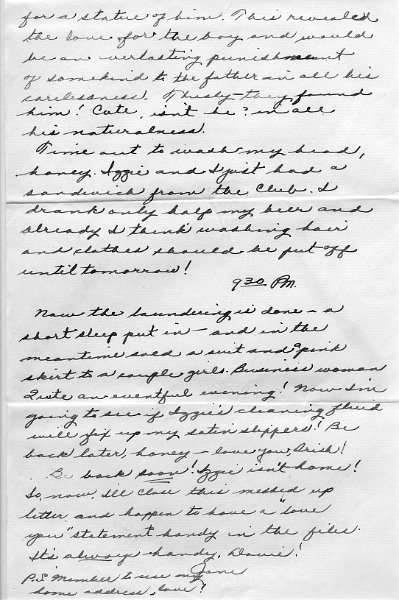 for a statue of him. This revealed
the love for the boy and would
be an everlasting punishment
of somekind to the father an all his
carelessness. Thisly - they found
him! Cute, isn't he? in all
his naturalness.
Time out to wash my head,
honey. Izzie and I just had a
sandwich from the Club. I
drank only half my beer and
already I think washing hair
and clothes should be put off
until tomorrow!
9 30 P.M.
Now the laundering is done - a
short sleep put in - and in the
meantime sold a suit and pink
skirt to a couple girls. Business woman
Quite an eventful evening! Now I'm
going to see if Izzie's cleaning fluid
will fix up my satin slippers! Be
back later, honey - love you, Irish!
Be back soon! Izzie isn't home!
So, now, I'll close this messed up
letter and happen to have a "love
you" statement handy in the files.
It's always handy, Davie!
Jane
P.S. 'Member to use my
home address, love!